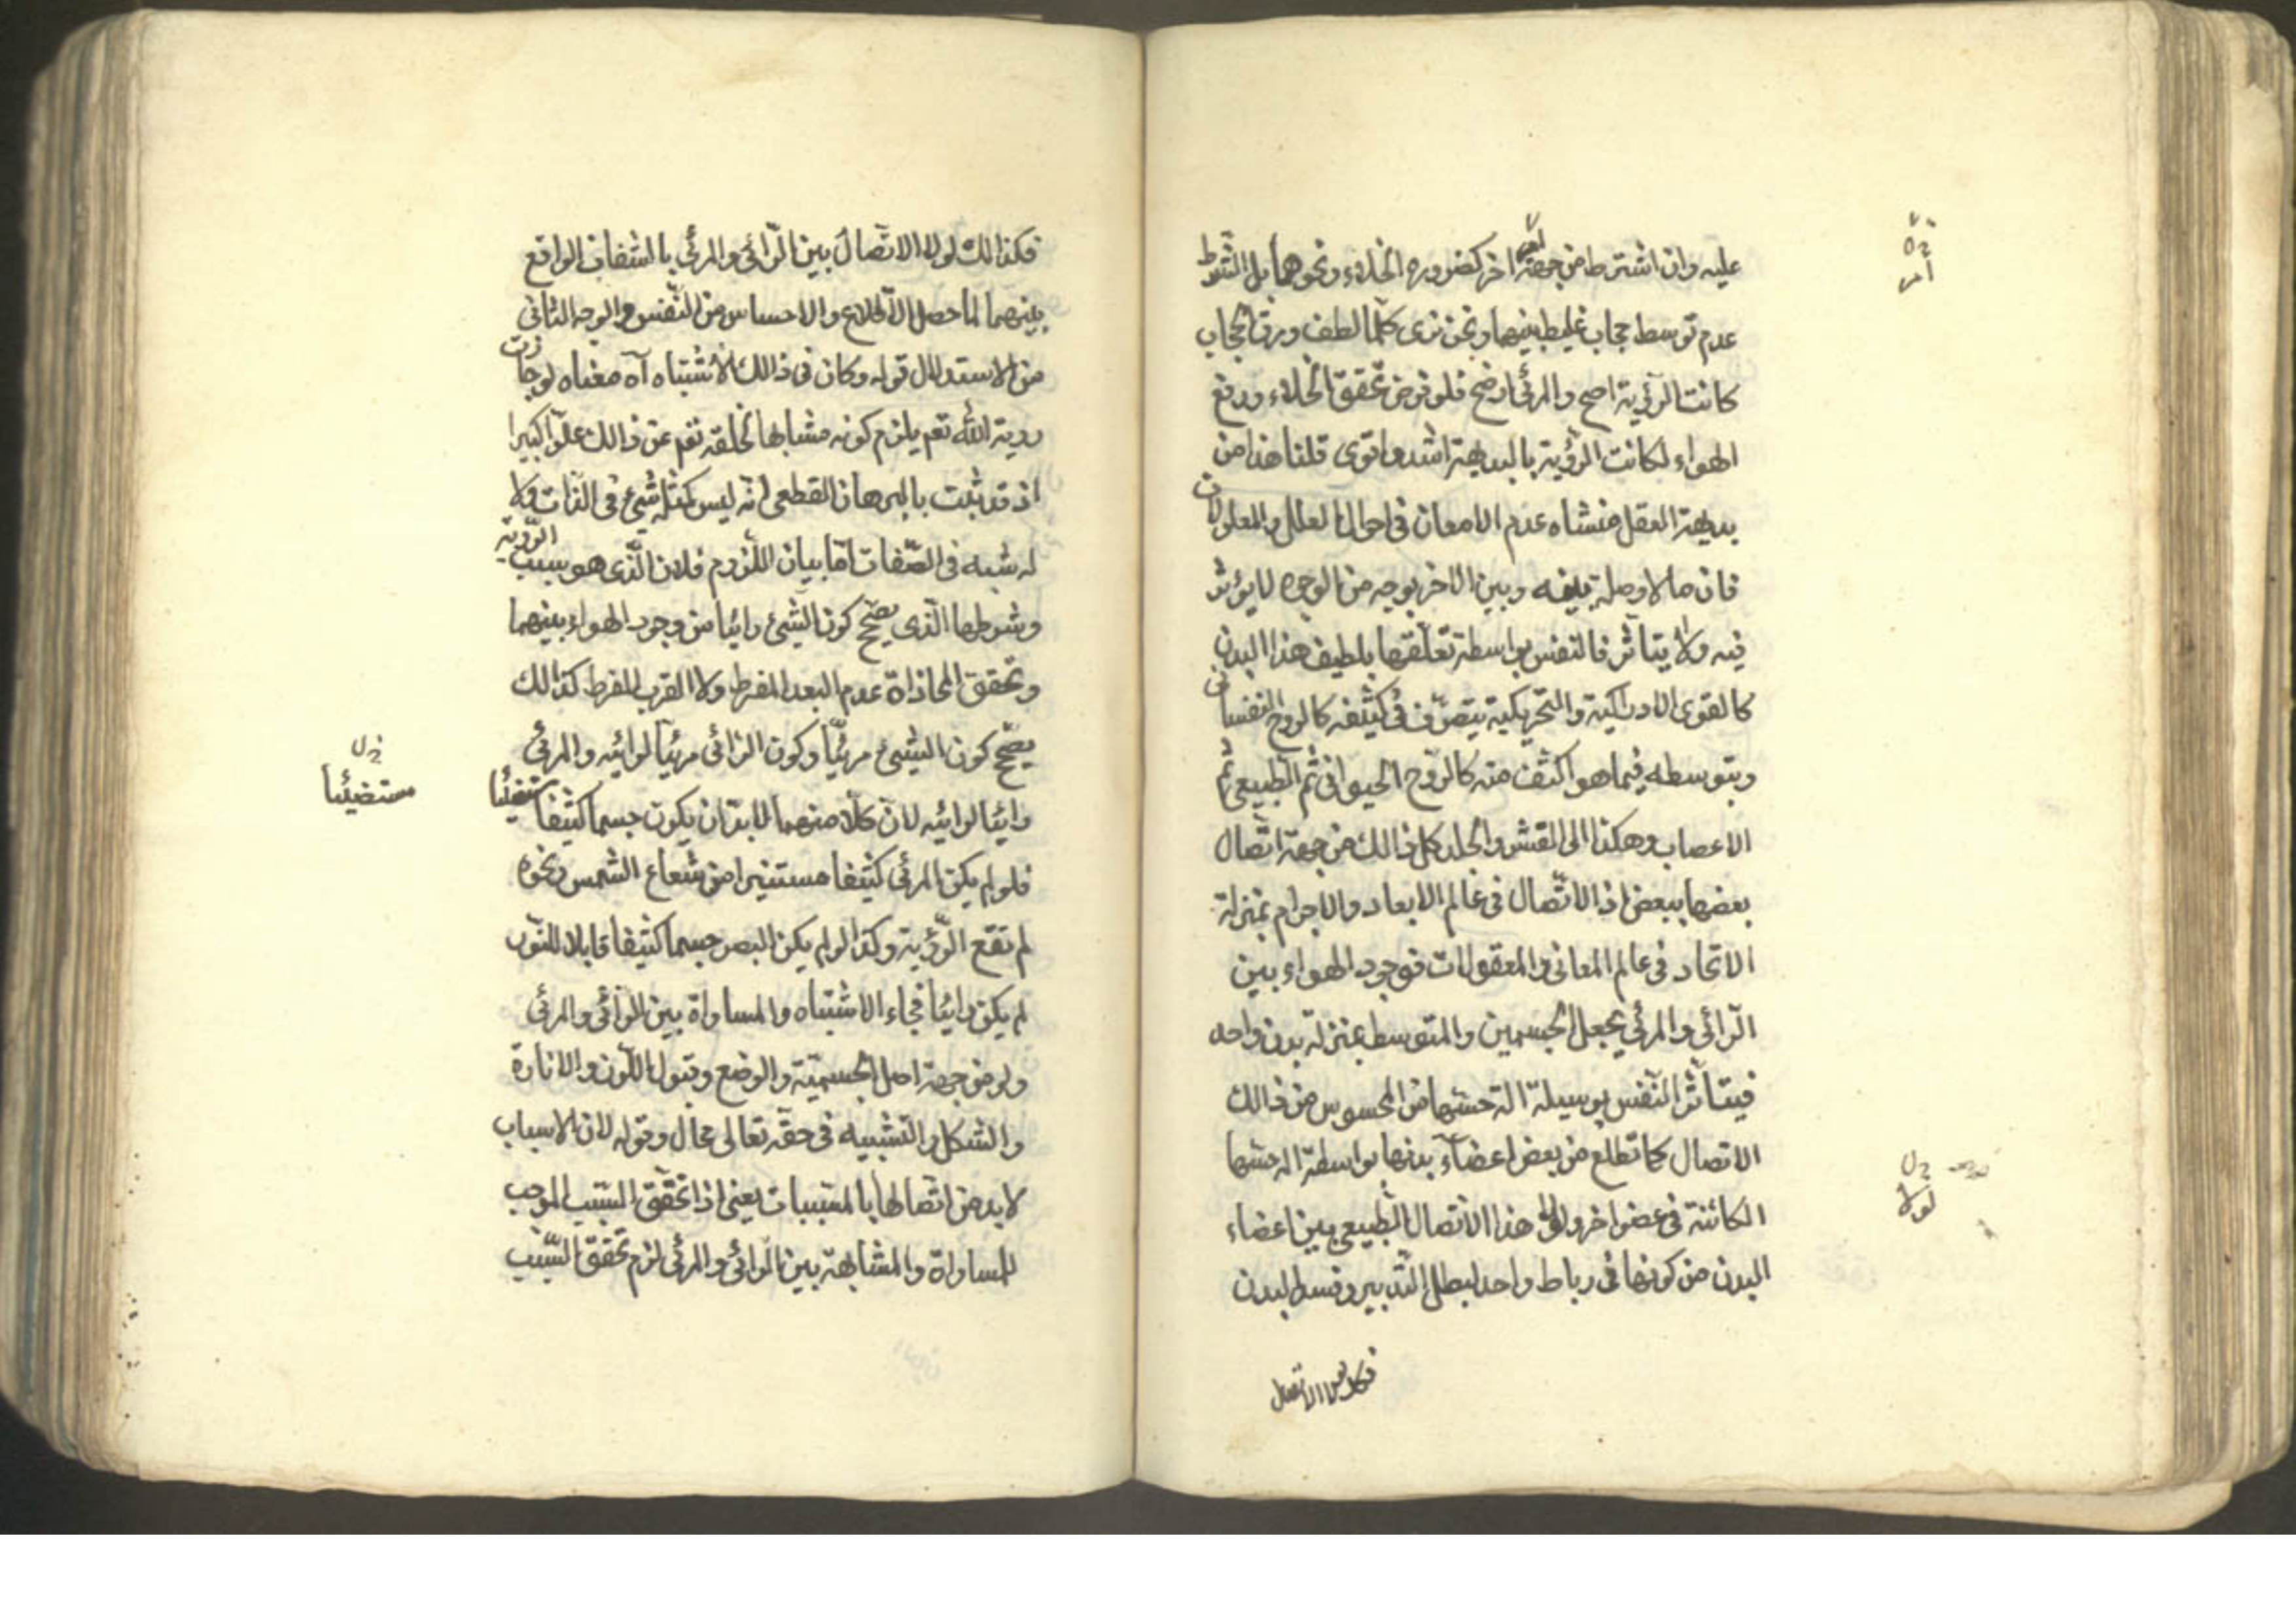 عليه وان اشترط من جهة اخر كضرورة الخلاء ونحوها بل الشرط
عدم توسط حجاب غليظ بينهما ونحن نرى كلما لطف ورق الحجاب
كانت الرؤية اصح والمرئى اوضح فلو فرض تحقق الخلاء ورفع
الهواء لكانت الرؤية بالبديهة اشد واقوى قلنا هذا من
بديهة العقل منشاه عدم الامعان فى احوال العلل والمعلولات
فان ما لا وصلة بينه وبين الاخر بوجه من الوجوه لا يؤثر
فيه ولا يتاثر فالنفس بواسطة تعلقها بلطيف هذا البدن
كالقوى الادراكية والتحريكية يتصرف فى كثيفه كالروح النفسانى
وبتوسطه فيما هو اكثف منه كالروح الحيوانى ثم الطبيعى ثم
الاعصاب وهكذا الى القشر والجلد كل ذالك من جهة اتصال
بعضها ببعض اذ الاتصال فى عالم الابعاد والاجرام بمنزلة
الاتحاد فى عالم المعانى والمعقولات فوجود الهواء بين
الرائى والمرئى يجعل الجسمين والمتوسط بمنزلة بدن واحد
فيتاثر النفس بوسيلة الة حسها من المحسوس من ذالك
الاتصال كما تطلع من بعض اعضاء بدنها بواسطة الة حسها
الكائنة فى عضو اخر ولولا هذا الاتصال الطبيعى بين اعضاء
البدن من كونها فى رباط واحد لبطل التدبير وفسد البدن
خ ل
امر
خ ل
لولا
فكذالك لولا الاتصال بين الرائى والمرئى بالشفاف الواقع
بينهما لما حصل الاطلاع والاحساس من النفس والوجه الثانى
من الاستدلال قوله وكان فى ذالك الاشتباه آه معناه لو جازت
روية الله تعم يلزم كونه مشابها لخلقه تعم عن ذالك علوا كبيرا
اذ قد ثبت بالبرهان القطعى انه ليس كمثله شئ فى الذات ولا
له شبه فى الصفات اما بيان اللزوم فلان الذى هو سبب الرؤية
وشرطها الذى يصحح كون الشئ رائيا من وجود الهواء بينهما
وتحقق المحاذاة عدم البعد المفرط ولا القرب المفرط كذالك
يصحح كون الشئ مرئيا وكون الرائى مرئيا لرائيه والمرئى
رائيا لرائيه لان كلا منهما لا بد ان يكون جسما كثيفا مستضيئا
فلو لم يكن المرئى كثيفا مستنيرا من شعاع الشمس ونحوه
لم تقع الرؤية وكذا لو لم يكن البصر جسما كثيفا قابلا للنور
لم يكن رائيا فجاء الاشتباه والمساواة بين الرائى والمرئى
ولو من جهة اصل الجسمية والوضع وقبول اللون والانارة
والشكل والتشبيه فى حقه تعالى محال وقوله لان الاسباب
لا بد من اتصالها بالمسببات يعنى اذا تحقق السبب الموجب
للمساواة والمشابهة بين الرائى والمرئى لزم تحقق السبب
خ ل
مستضيئا